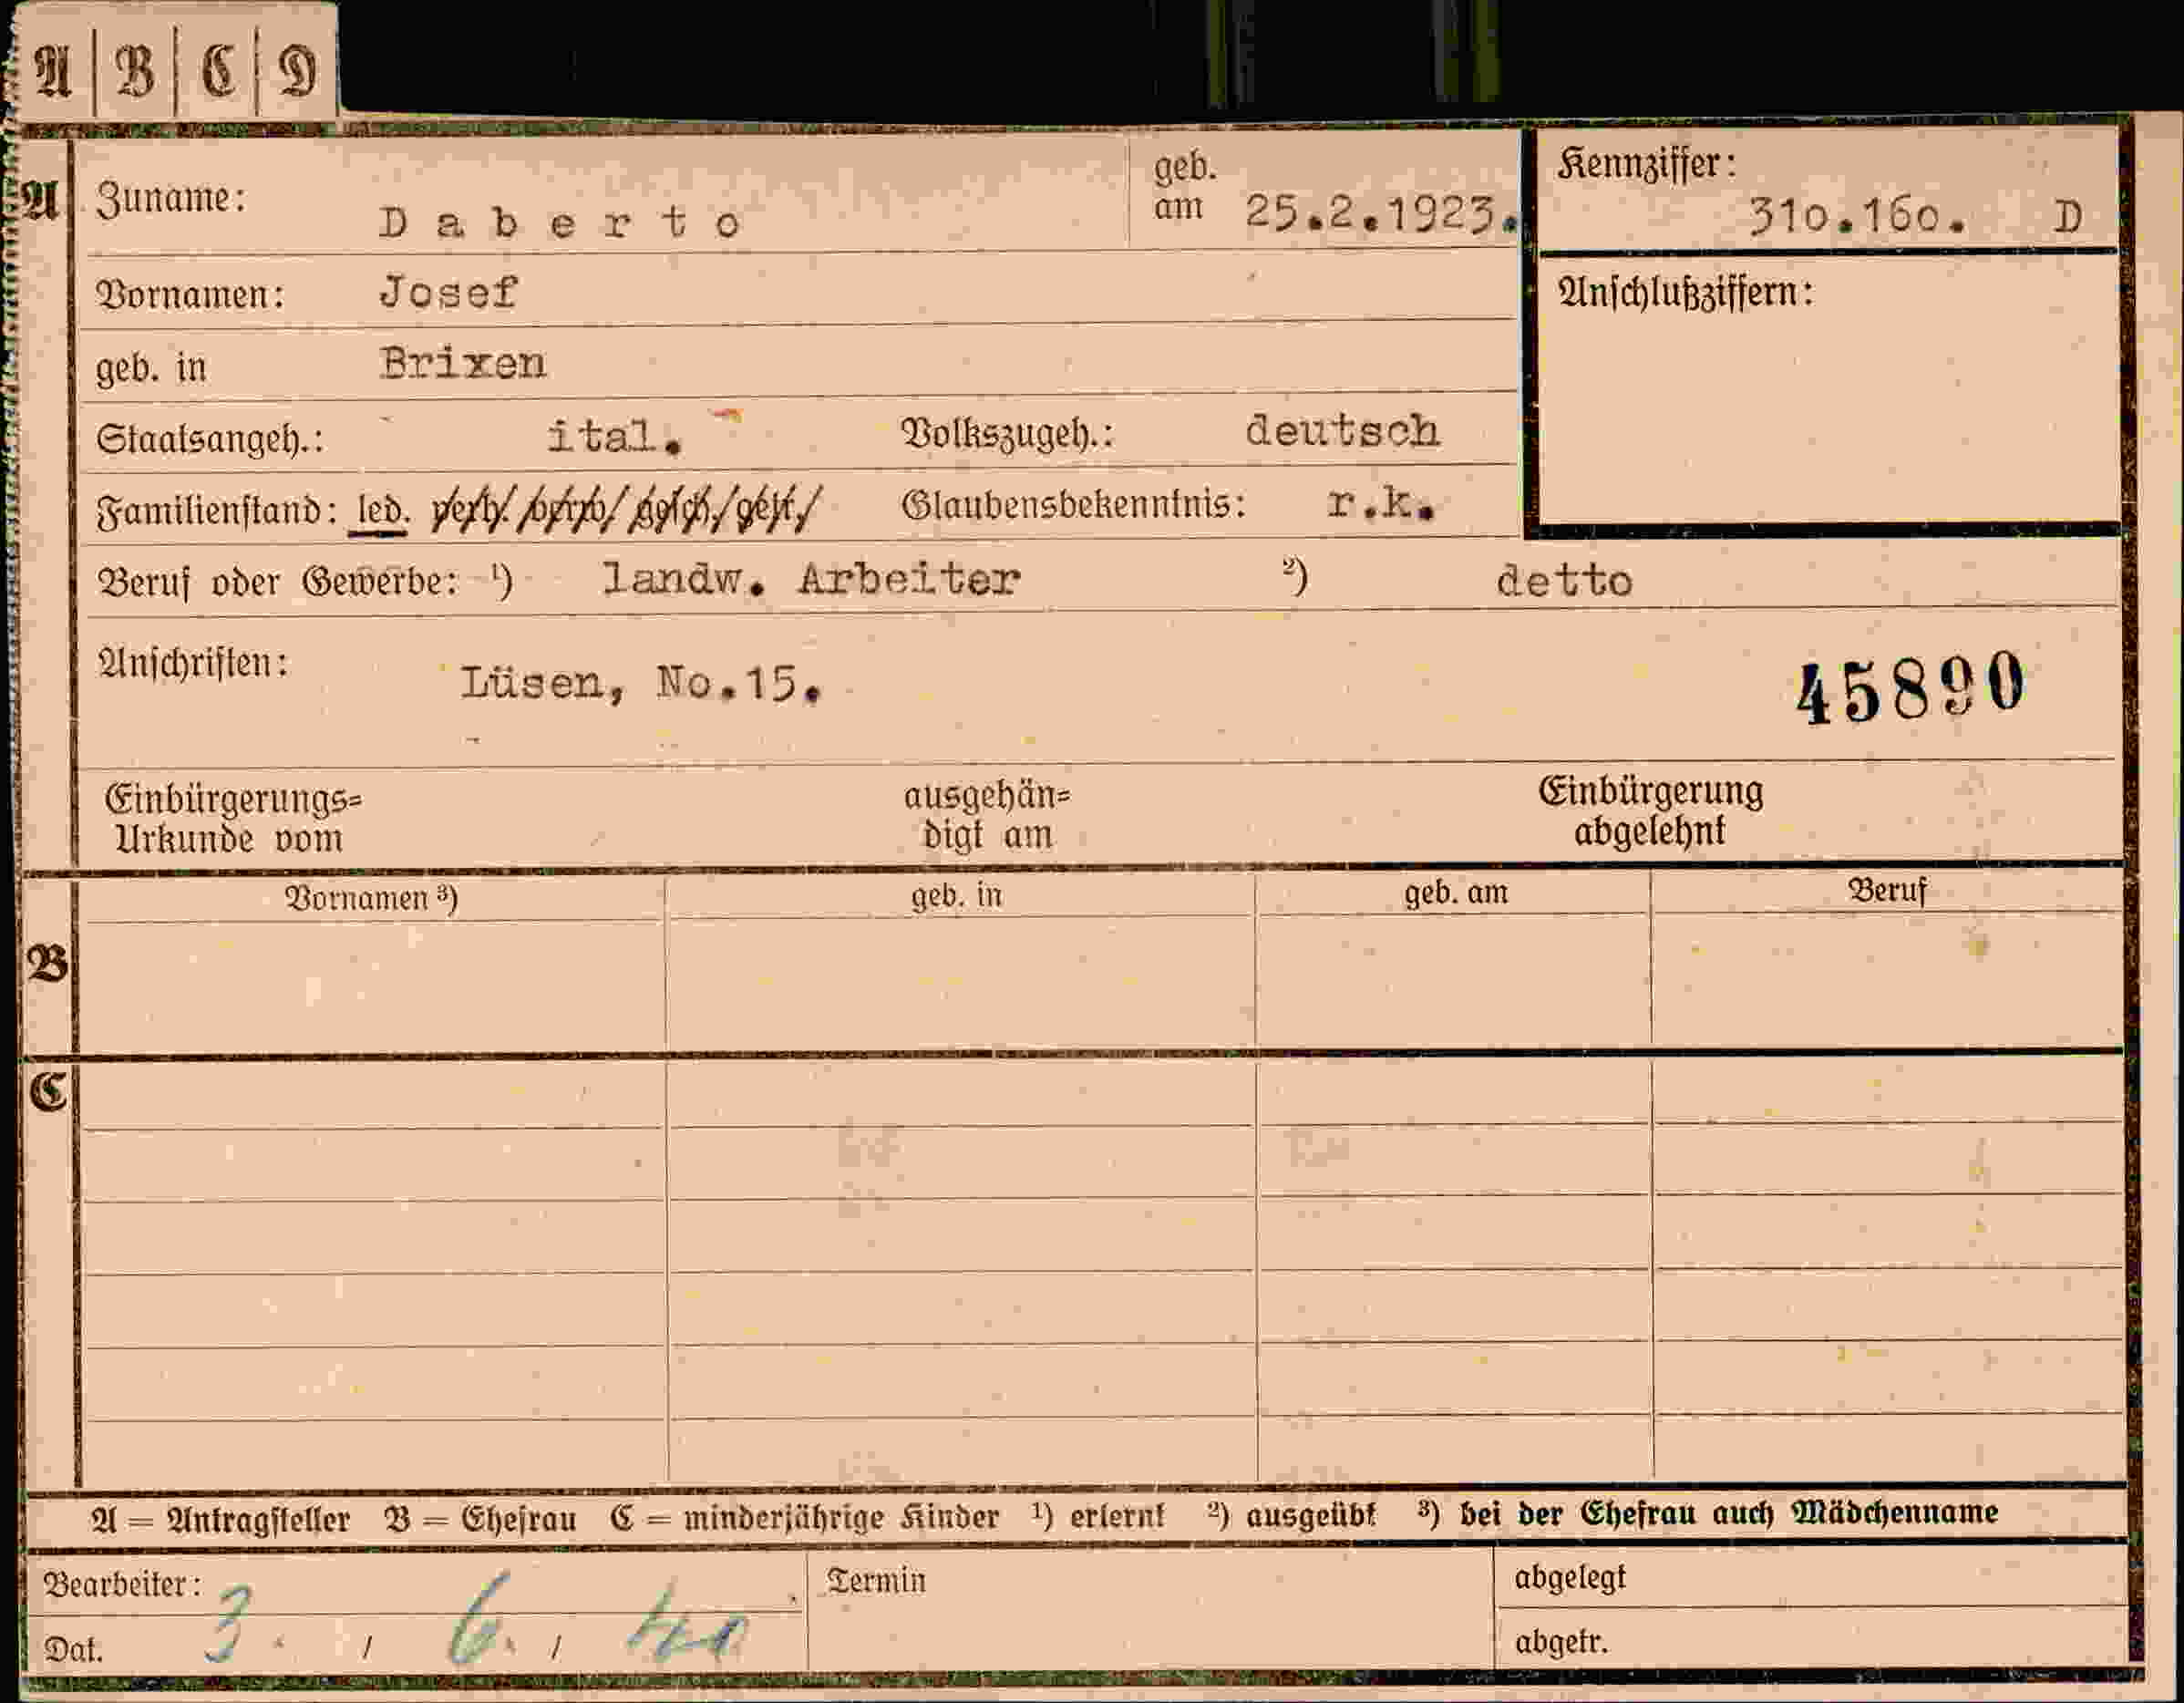 A | B | C | D
A Zuname: Daberto geb. am 25.2.1923. Kennziffer: 31o.16o. D
Vornamen: Josef Anschlußziffern:
geb. in Brixen
Staatsangeh.: ital. Volkszugeh.: deutsch
Familienstand: led. verh. verw. gesch. get. Glaubensbekenntnis: r.k.
Beruf oder Gewerbe: ¹) landw. Arbeiter ²) detto
Anschriften: Lüsen, No.15. 45890
Einbürgerungs= ausgehän= Einbürgerung
Urkunde vom digt am abgelehnt
Vornamen ³) geb. in geb. am Beruf
B
C
A = Antragsteller B = Ehefrau C = minderjährige Kinder ¹) erlernt ²) ausgeübt ³) bei der Ehefrau auch Mädchenname
Bearbeiter: Termin abgelegt
Dat. 3. / 6. / 40 abgetr.